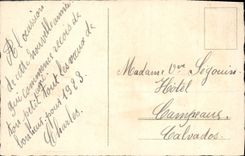 A l'occasion
de cette nouvelle année
qui commence reçois de
ton petit tous les vœux de
bonheur pour 1923.
Charles.
Madame Vve Segouin
Hôtel
Campeaux
Calvados